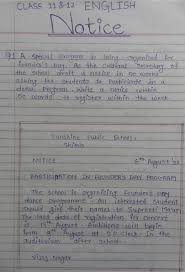 CLASS 11 & 12 ENGLISH
Notice
Q1 A special program is being organised for
Founder's Day. As the Cultural Secretary of
the school draft a notice in 50 words
asking the students to participate in a
dance program. Write a notice within
50 words to register within the week
Sunshine Public School,
Shimla
NOTICE 6th August
PARTICIPATION IN FOUNDER'S DAY PROGRAM
The school is organising Founder's Day
dance programme. An interested student
should give their names to Supreeti Mam.
The last date of registration for concert
is 14th August. Auditions will begin
from August at 5 P.M. O'clock in the
auditorium after school.
Vijay Nagar